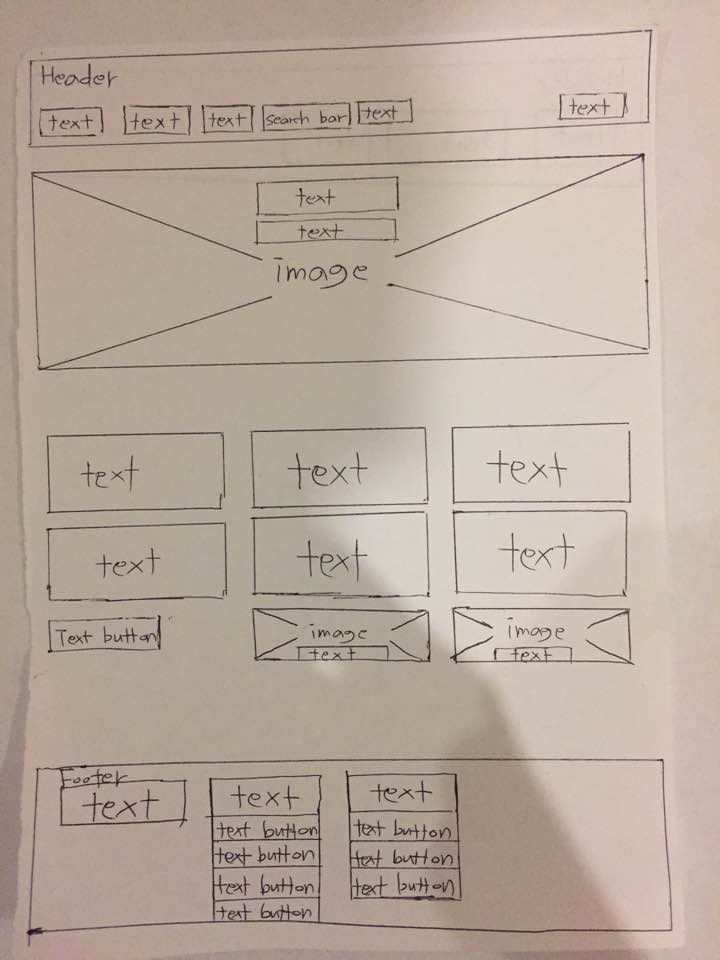 Header
text text text search bar text text
text
text
image
text text text
text text text
Text button image image
text text
Footer
text text text
text button text button
text button text button
text button text button
text button